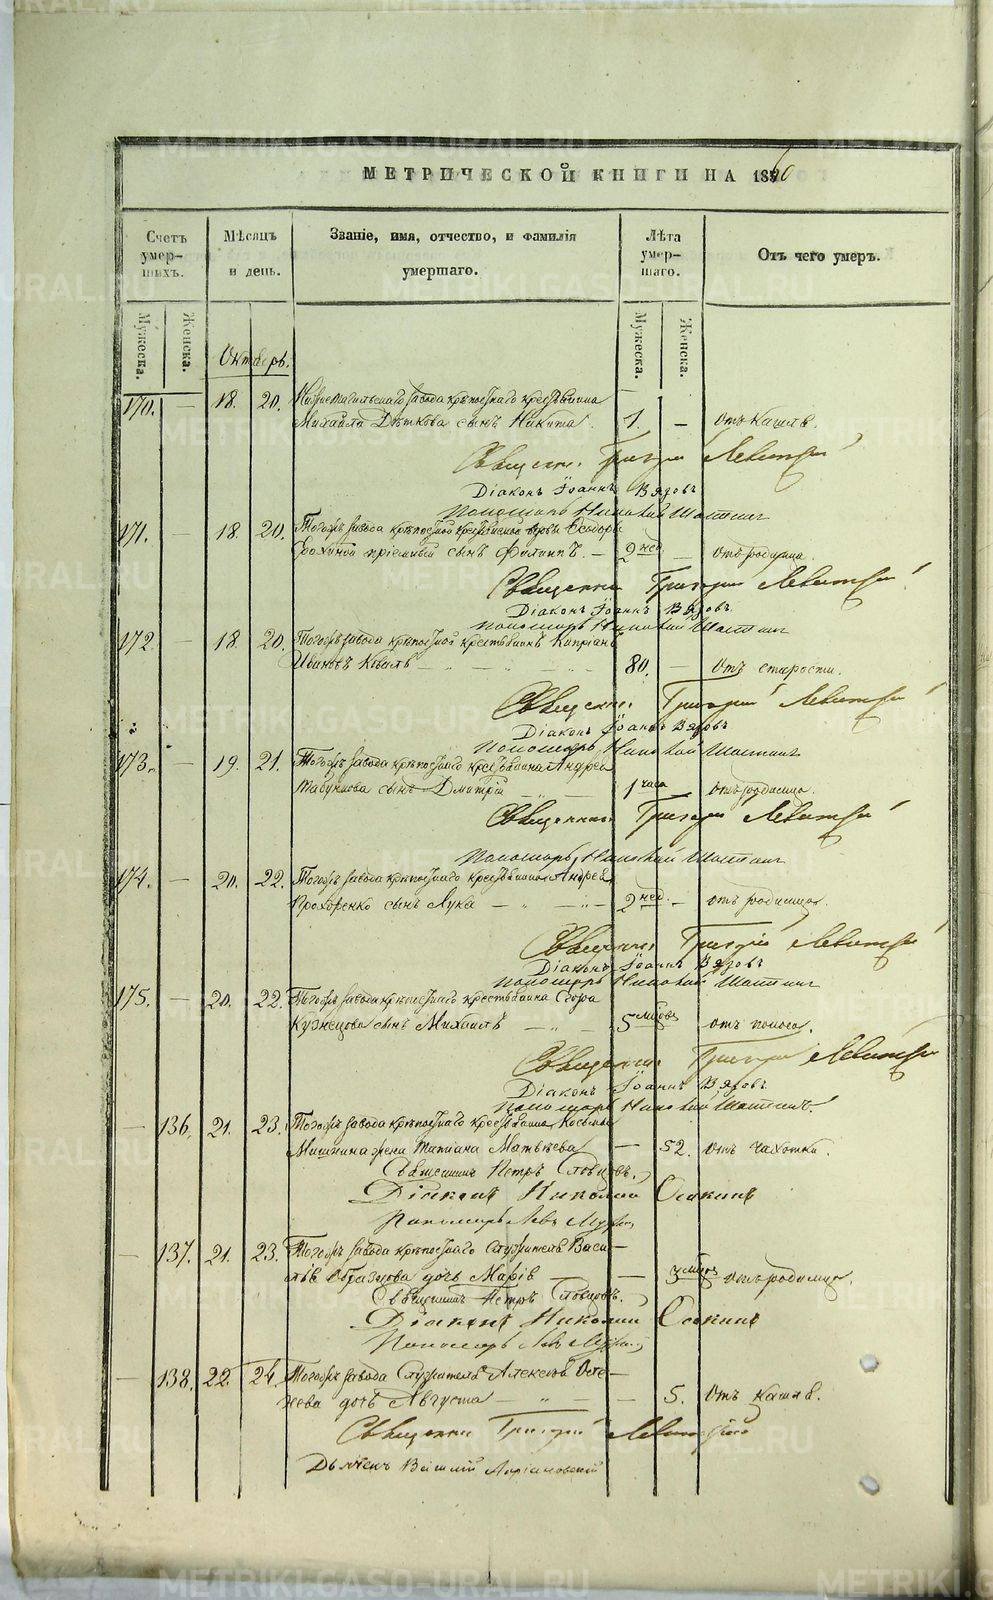 МЕТРИЧЕСКОЙ КНИГИ НА 1860
Счетъ умер-шихъ.
Мѣсяцъ и день.
Званіе, имя, отчество, и фамилія умершаго.
Лѣта умер-шаго.
Отъ чего умеръ.
Мужеска. Женска. Мужеска. Женска.
Октябрь.
170. — 18. 20. Нижнетагильскаго завода крѣпостнаго крестьянина
Михаила сынъ Никита. 1. — отъ кашля.
Священникъ Григорій Левитскій
Діаконъ Іоаннъ Вязовъ
Пономарь Николай
171. — 18. 20. Тогожъ завода крѣпостной крестьянской Ѳеодоры
пріемный сынъ Филиппъ. — 2 нед. — отъ родимца.
Священникъ Григорій Левитскій
Діаконъ Іоаннъ Вязовъ
Пономарь Николай
172. — 18. 20. Тогожъ завода крѣпостной крестьянинъ Кипріанъ
Ивановъ 80. — отъ старости.
Священникъ Григорій Левитскій
Діаконъ Іоаннъ Вязовъ
Пономарь Николай
173. — 19. 21. Тогожъ завода крѣпостнаго крестьянина Андрея
сынъ Дмитрій 1 часа отъ родимца.
Священникъ Григорій Левитскій
Пономарь Николай
174. — 20. 22. Тогожъ завода крѣпостнаго крестьянина Андрея
Прохоренко сынъ Лука — 2 нед. — отъ родимца.
Священникъ Григорій Левитскій
Діаконъ Іоаннъ Вязовъ
Пономарь Николай
175. — 20. 22. Тогожъ завода крѣпостнаго крестьянина Егора
Кузнецова сынъ Михаилъ 5 мѣсяц. отъ поноса.
Священникъ Григорій Левитскій
Діаконъ Іоаннъ Вязовъ
Пономарь Николай
— 136. 21. 23. Тогожъ завода крѣпостнаго крестьянина Косьмы
жена Татіана Матвѣева — 52. отъ чахотки.
Священникъ Петръ Словцовъ
Діаконъ Николай Осокинъ
Пономарь Левъ
— 137. 21. 23. Тогожъ завода крѣпостнаго служителя Васи-
лья Образцова дочь Марія — 3 мѣсяц. отъ родимца.
Священникъ Петръ Словцовъ.
Діаконъ Николай Осокинъ
Пономарь Левъ
— 138. 22. 24. Тогожъ завода служителя Алексѣя
дочь Августа — 5. отъ кашля.
Священникъ Григорій Левитскій
Дьячекъ Василій
METRIKI.GASO-URAL.RU